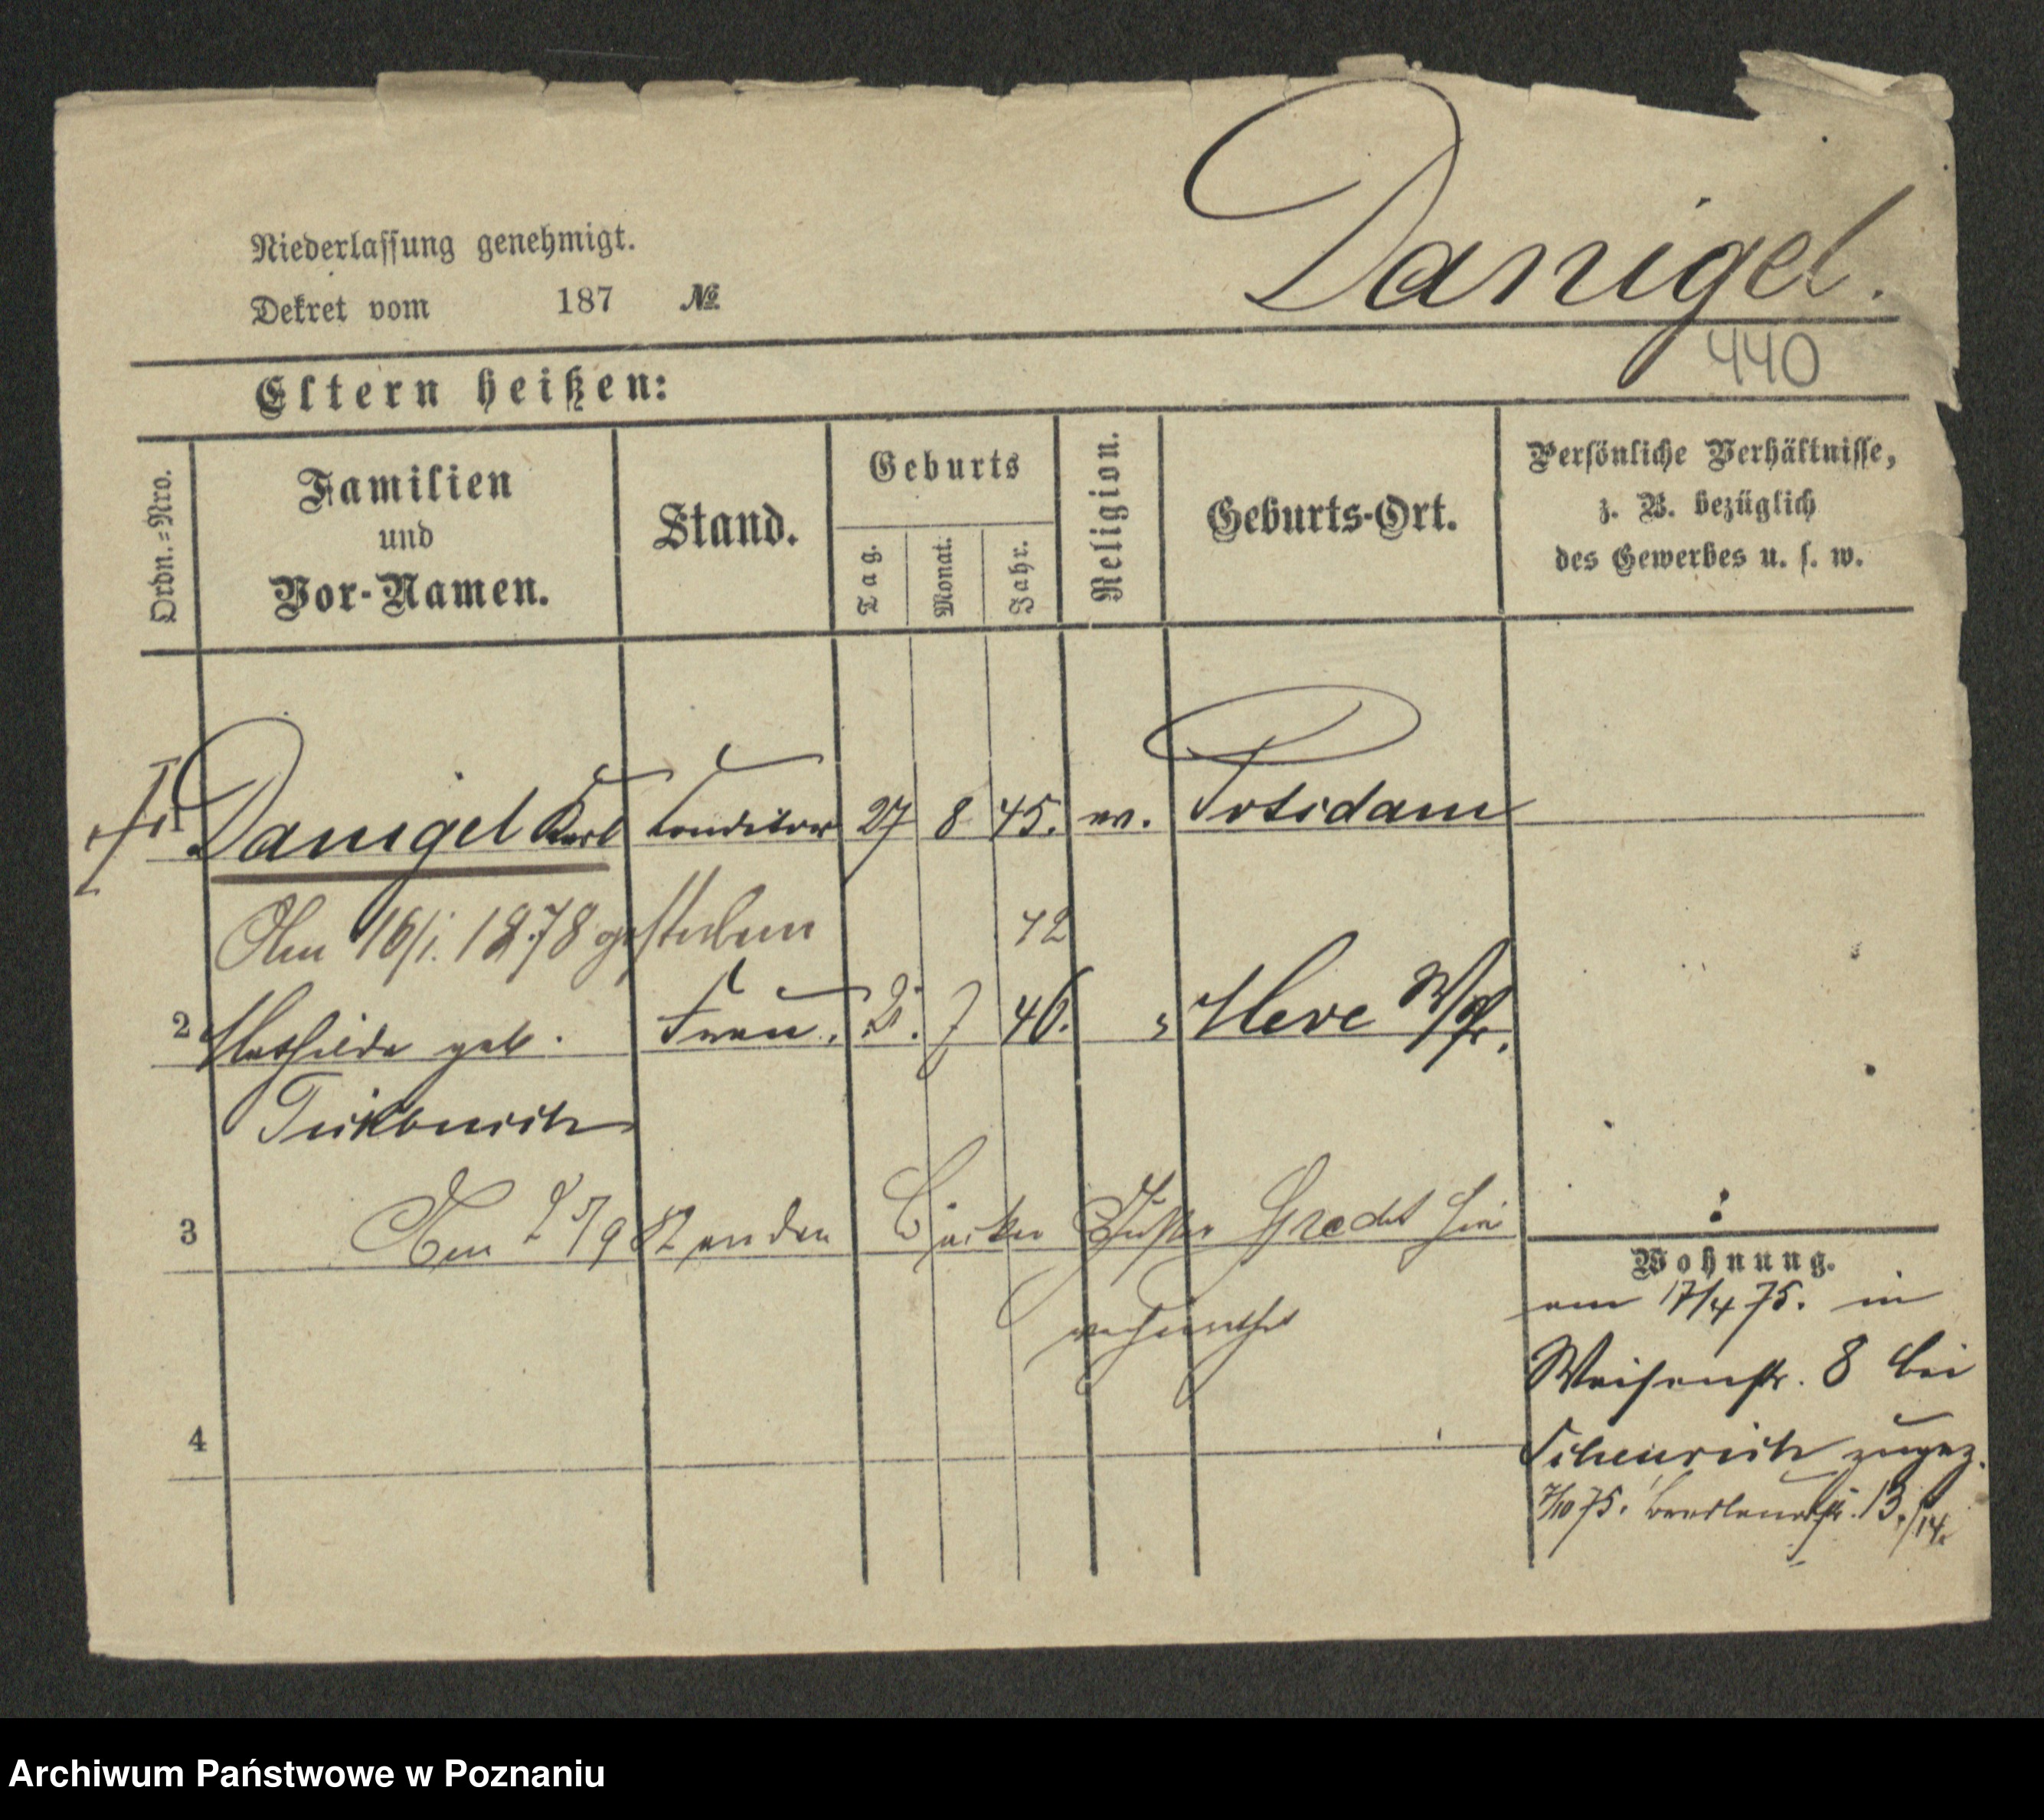 Danigel.
Niederlassung genehmigt.
Dekret vom 187 №
440
Eltern heißen:
Ordn.=Nro.
Familien
und
Vor-Namen.
Stand.
Geburts
Tag.
Monat.
Jahr.
Religion.
Geburts-Ort.
Persönliche Verhältnisse,
z. B. bezüglich
des Gewerbes u. s. w.
1 Danigel Karl Conditor 27 8 45. ev. Potsdam
Am 16/1. 1878 gestorben 42
2 Mathilde geb. Frau. 2. 7 46. Meve W/Pr.
3 Am 25/9 82 an den Bäcker Gustav hier
verheirathet
4
Wohnung.
am 17/4 75. in
Waisenstr. 8 bei
zugez.
7/10 75. 13./14.
Archiwum Państwowe w Poznaniu